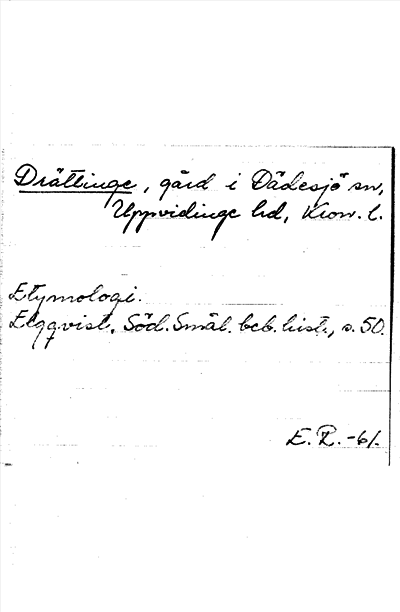 Drättinge, gård i Dädesjö sn,
Uppvidinge hd, Kron. l.
Etymologi.
Elgqvist, Söd. Smål. beb. hist., s. 50.
E. R. -61.